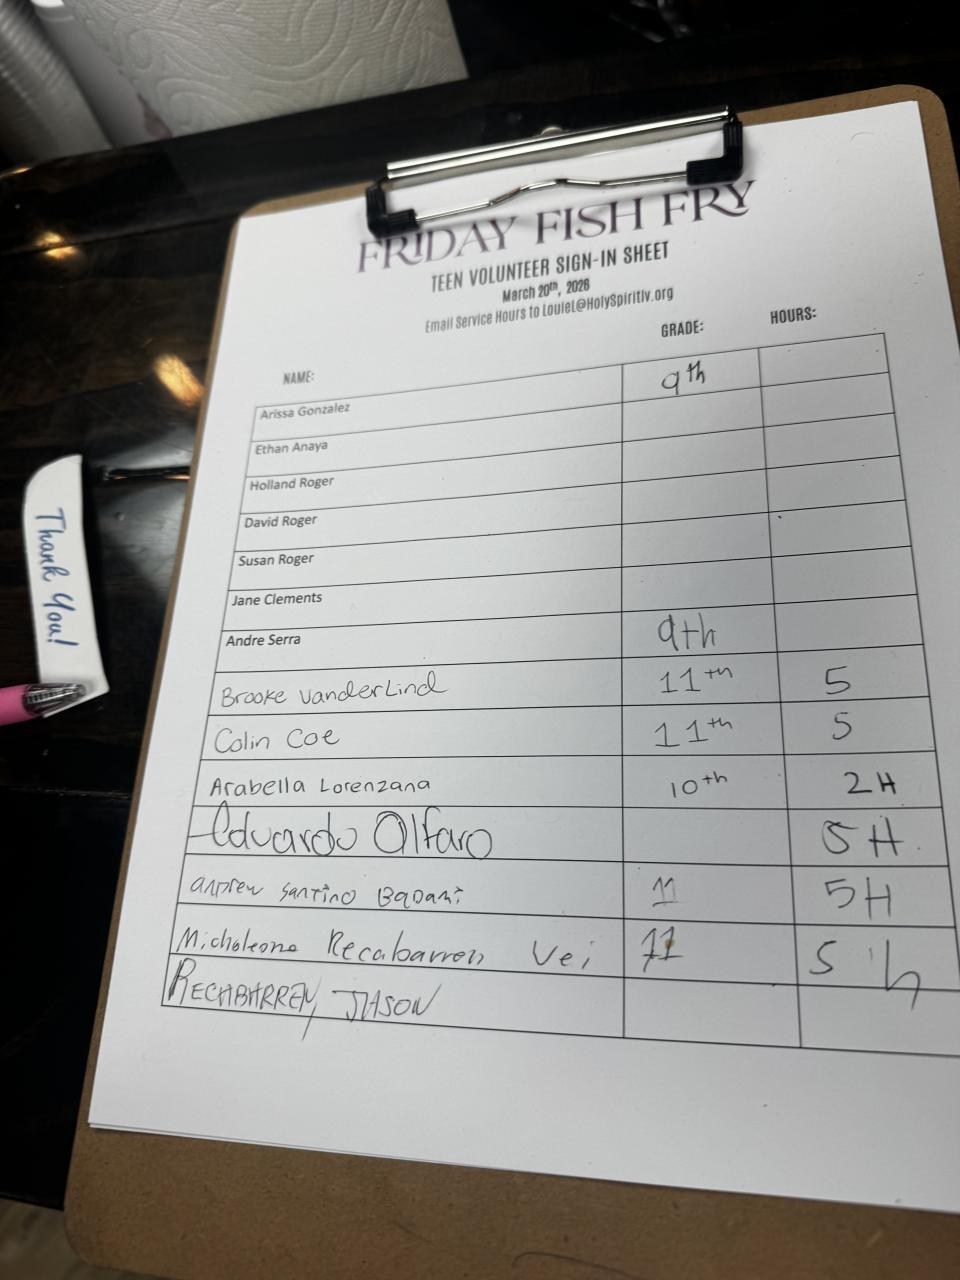 FRIDAY FISH FRY
TEEN VOLUNTEER SIGN-IN SHEET
March 20th, 2026
Email Service Hours to LouieL@HolySpiritlv.org
NAME: GRADE: HOURS:
Arissa Gonzalez 9th
Ethan Anaya
Holland Roger
David Roger
Susan Roger
Jane Clements
Andre Serra 9th
Brooke VanderLind 11th 5
Colin Coe 11th 5
Arabella Lorenzana 10th 2H
Eduardo Alfaro 5H
Andrew Santino Badani 11 5H
Recabarren Vei 11 5 h
RECABARREN, JASON
Thank You!